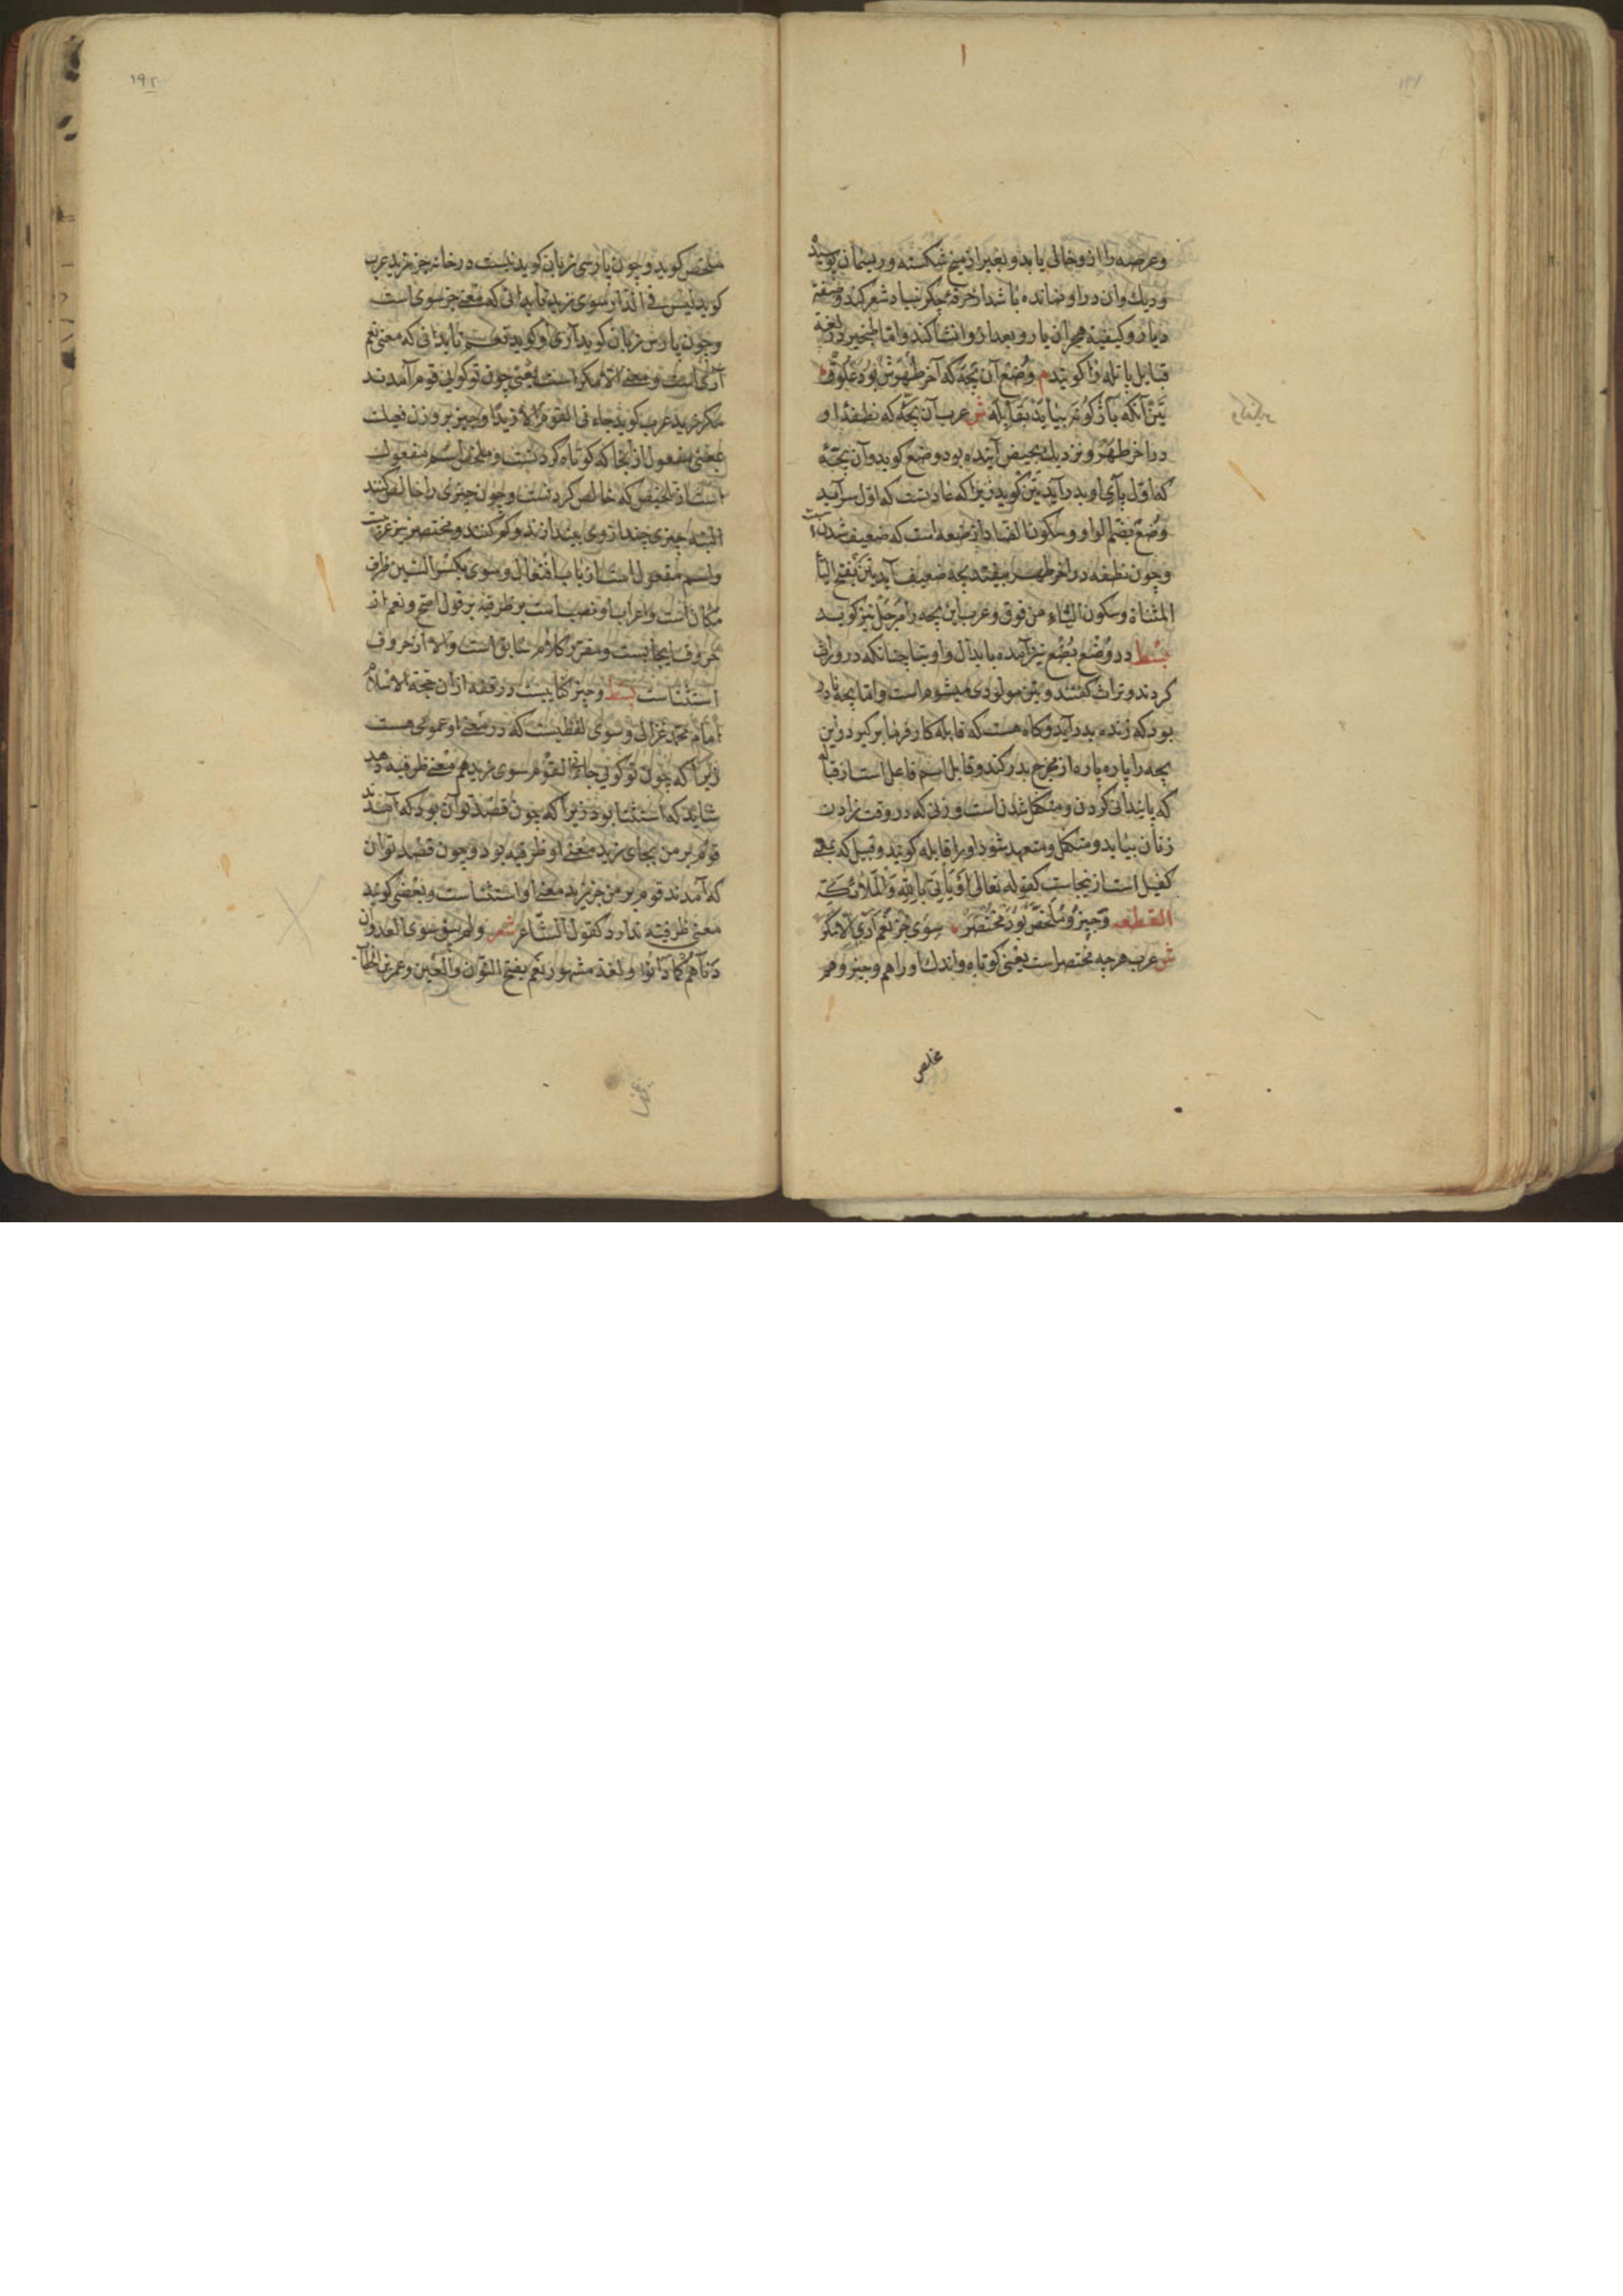 وعرصه را ازو خالی یابد و بغیر از میخ شکسته و ریسمان پوسیده
و ریك وان در او نمانده باشد از حرقهٔ جگر بنیاد شعر کند و صفة
دیار و کیفیة هجران یار و بعد از و انشا کند و اما المخیر دفعة
قبایل باتله را کویند م وضع آن بچه که آخر طهرش بود علوق
یتن آنکه باژکونه بیاید بقابله ش عرب آن بچه که نطفهٔ او
در آخر طهر و نزدیك بحیض آینده بود وضع کوید و آن بچهٔ
که اول پای او بدر آید یتن کوید زیرا که عادتست که اول سر آید
وضع بضم الواو و سکون الضاد از ضعه است که ضعیف شدن است
و چون نطفه در آخر طهر بیفتد بچه ضعیف آید یتن بفتح الیا
المثناة و سکون التاء من فوق و عرب این بچه را مرجل نیز کوید
بسط در وضع تضع نیز آمده بابدال واو بتا چنانکه در وراث
کردند و تراث کفتند و یتن مولودی میشوم است و اما بچهٔ
بود که زنده بدر آید و کاه هست که قابله کار فرما بر کیرد و این
بچه را پاره پاره از مخرج بدر کند و قابل اسم فاعل است از قباله
که پایندانی کردن و متکفل شدن است و زنی که در وقت زادن
زنان بیاید و متکفل و متعهد شود او را قابله کویند و قبیل که بمعنی
کفیل است ازینجاست کقوله تعالی او یاتی بالله والملائکة
القطعه وجیز و ملخص بود مختصر سوی جز نعم آری الا مکر
ش عرب هر چه مختصر است یعنی کوتاه و اندك او را هم وجیز و هم
ملخص
ملخص کوید و چون پارسی زبان کوید نیست در خانه جز زید عرب
کوید لیس فی الدار سوی زید تا بدانی که معنی جز سوی است
و چون پارسی زبان کوید آری او کوید نعم تا بدانی که معنی نعم
آری است و معنی الا مکر است یعنی چون تو کوئی قوم آمدند
مکر زید عرب کوید جاءنی القوم الا زیدا وجیز بر وزن فعیلست
بمعنی مفعول از ایجاز که کوتاه کردنست و ملخص اسم مفعول
است از تلخیص که خالص کردنست و چون چیزی را خالص کنند
البته چیزی چند از وی بیندازند و کم کنند و مختصر نیز عربیست
و اسم مفعول است از باب افتعال و سوی بکسر السین ظرف
مکان است و اعراب او نصب است بر ظرفیة بر قول اصح و نعم از
حروف ایجابست و مقرر کلام سابق است و الا از حروف
استثناست بسط وجیز کتابیست در فقه از آن حجة الاسلام
امام محمد غزالی و سوی لفظیست که در معنی او عمومی هست
زیرا که چون تو کوئی جاءنی القوم سوی زید هم معنی ظرفیة دهد
شاید که استثنا بود زیرا که چون قصد تو آن بود که آمدند
قوم بر من بجای زید معنی او ظرفیه بود و چون قصد تو آن
که آمدند قوم بر من جز زید معنی او استثناست و بعضی کوید
معنی ظرفیته ندارد کقول الشاعر شعر ولم یبق سوی العدوان
دناهم کما دانوا و لغة مشهور نعم بفتح النون والعین و عمر بن الخطاب